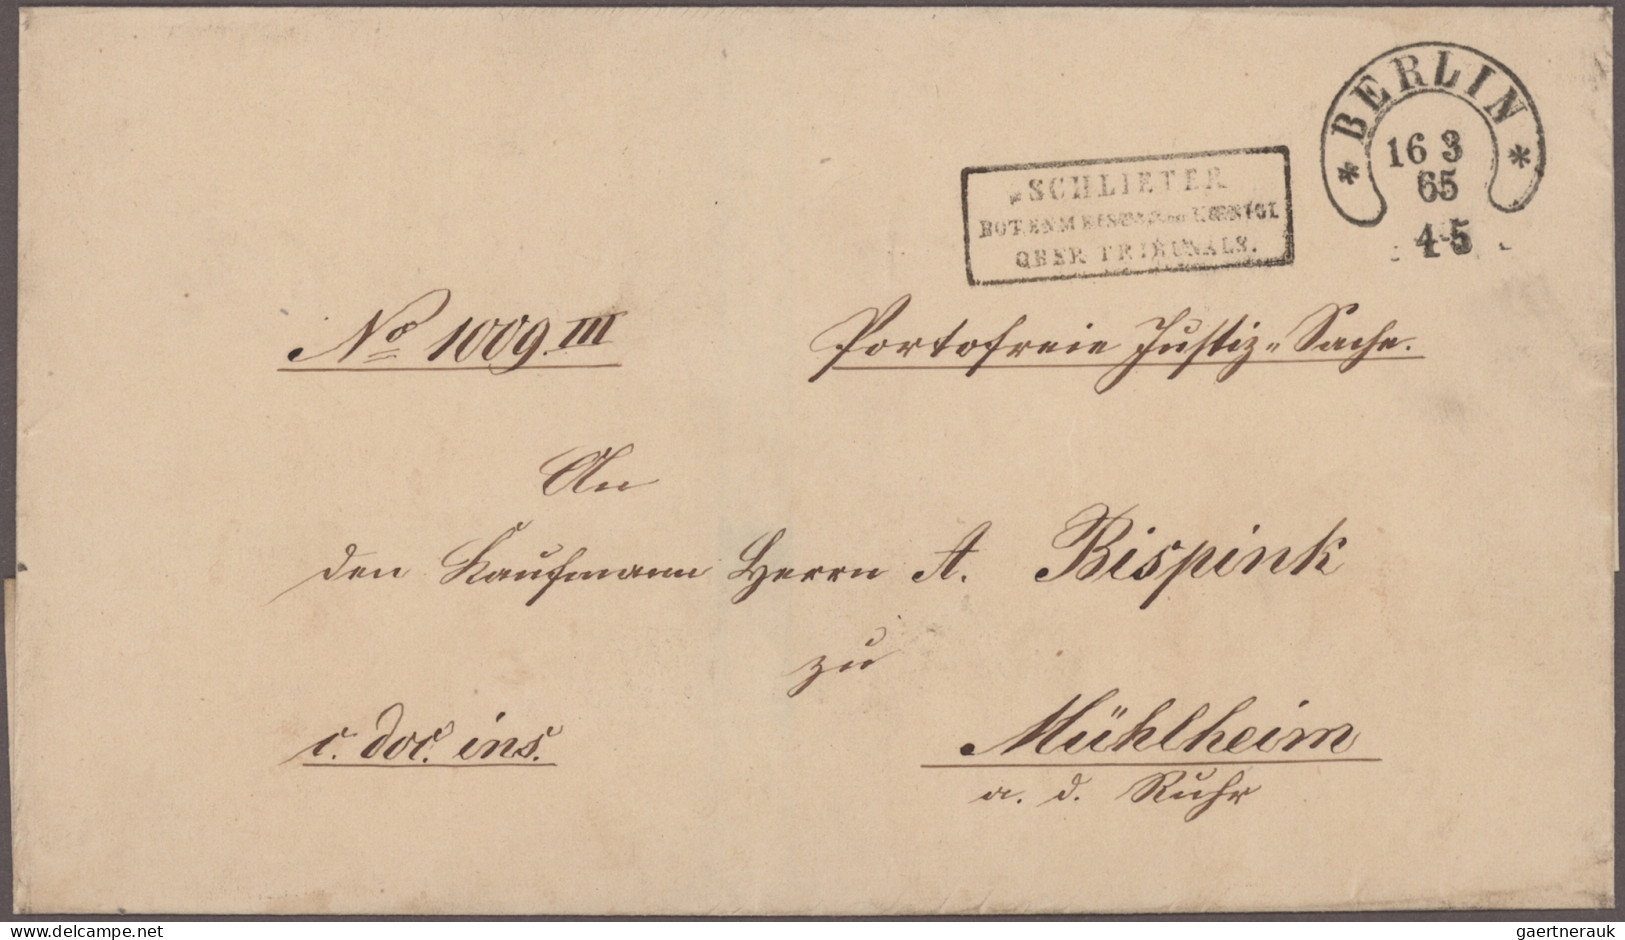 * BERLIN *
16 3
65
4-5
SCHLIETER
BOTENMEISTER KŒNIGL
OBER TRIBUNALS.
No 1009.III
Portofreie Justiz-Sache.
An
den Kaufmann Herrn A. Bispink
zu
c. doc. ins.
Mühlheim
a. d. Ruhr
www.delcampe.net
gaertnerauk